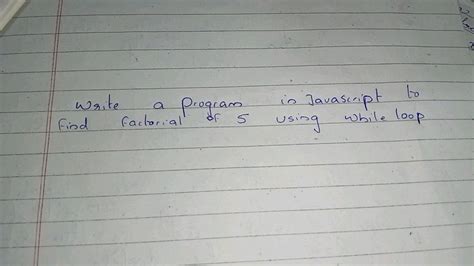 Write a program in Javascript to
find factorial of 5 using while loop